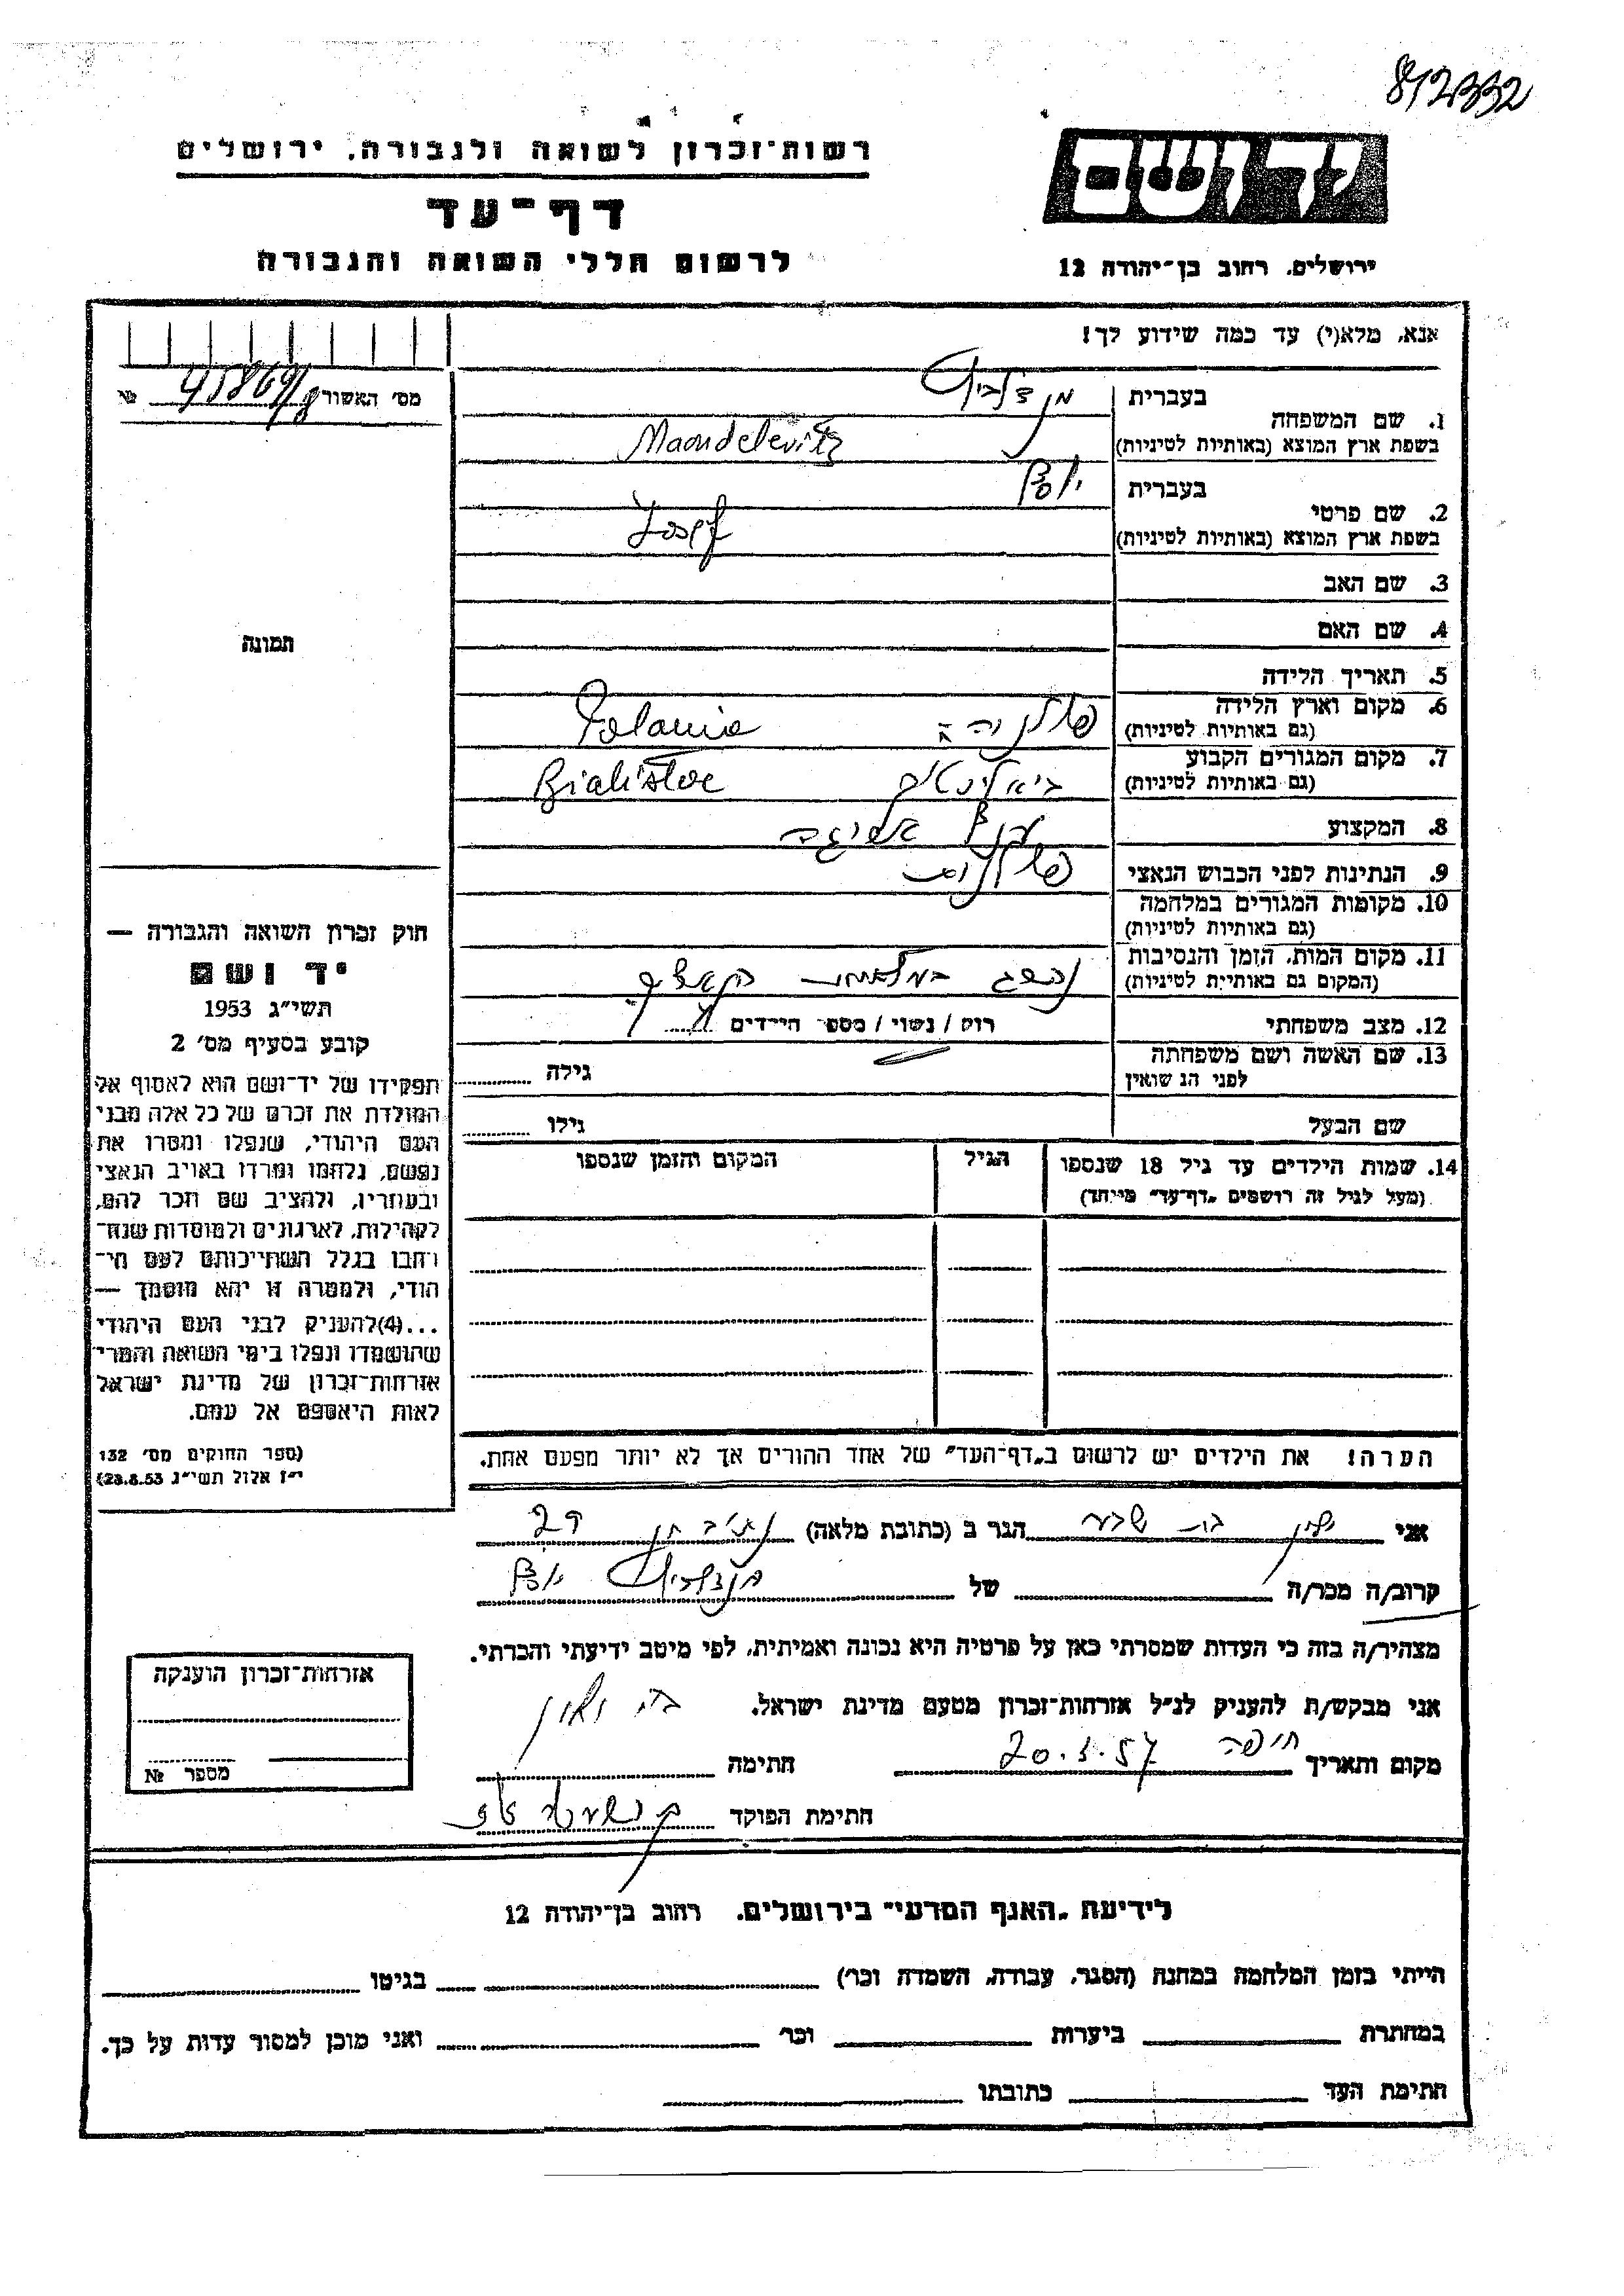 812332
רשות־זכרון לשואה ולגבורה, ירושלים
דף־עד
לרשום חללי השואה והגבורה
ידושם
ירושלים, רחוב בן־יהודה 12
אנא, מלא(י) עד כמה שידוע לך!
מס׳ האשור № 45869/8
1. שם המשפחה
בעברית מנדלביץ
בשפת ארץ המוצא (באותיות לטיניות) Maandelevitz
2. שם פרטי
בעברית יוסף
בשפת ארץ המוצא (באותיות לטיניות) Josef
3. שם האב
4. שם האם
תמונה
5. תאריך הלידה
6. מקום וארץ הלידה
(גם באותיות לטיניות) Polania
7. מקום המגורים הקבוע
(גם באותיות לטיניות) ביאליסטוק Bialistoc
8. המקצוע
9. הנתינות לפני הכבוש הנאצי פולנית
10. מקומות המגורים במלחמה
(גם באותיות לטיניות)
11. מקום המות, הזמן והנסיבות
(המקום גם באותיות לטיניות) נהרג במלחמת
12. מצב משפחתי רוק / נשוי / מספר הילדים
13. שם האשה ושם משפחתה
לפני הנשואין גילה
שם הבעל גילו
14. שמות הילדים עד גיל 18 שנספו הגיל המקום והזמן שנספו
(מעל לגיל זה רושמים „דף־עד” מיוחד)
הערה! את הילדים יש לרשום ב„דף־העד” של אחד ההורים אך לא יותר מפעם אחת.
חוק זכרון השואה והגבורה —
יד ושם
תשי״ג 1953
קובע בסעיף מס׳ 2
תפקידו של יד־ושם הוא לאסוף אל
המולדת את זכרם של כל אלה מבני
העם היהודי, שנפלו ומסרו את
נפשם, נלחמו ומרדו באויב הנאצי
ובעוזריו, ולהציב שם וזכר להם,
לקהילות, לארגונים ולמוסדות שנח־
רבו בגלל השתייכותם לעם הי־
הודי, ולמטרה זו יהא מוסמך —
...(4) להעניק לבני העם היהודי
שהושמדו ונפלו בימי השואה והמרי
אזרחות־זכרון של מדינת ישראל
לאות היאספם אל עמם.
(ספר החוקים מס׳ 132
י״ז אלול תשי״ג 28.8.53)
אני בת שבע הגר ב (כתובת מלאה)
קרוב/ה מכר/ה של מנדלביץ יוסף
מצהיר/ה בזה כי העדות שמסרתי כאן על פרטיה היא נכונה ואמיתית, לפי מיטב ידיעתי והכרתי.
אני מבקש/ת להעניק לנ״ל אזרחות־זכרון מטעם מדינת ישראל.
מקום ותאריך חיפה 20.5.57 חתימה
חתימת הפוקד
אזרחות־זכרון הוענקה
מספר №
לידיעת „האגף המדעי” בירושלים, רחוב בן־יהודה 12
הייתי בזמן המלחמה במחנה (הסגר, עבודה, השמדה וכו׳) בגיטו
במחתרת ביערות וכו׳ ואני מוכן למסור עדות על כך.
חתימת העד כתובתו